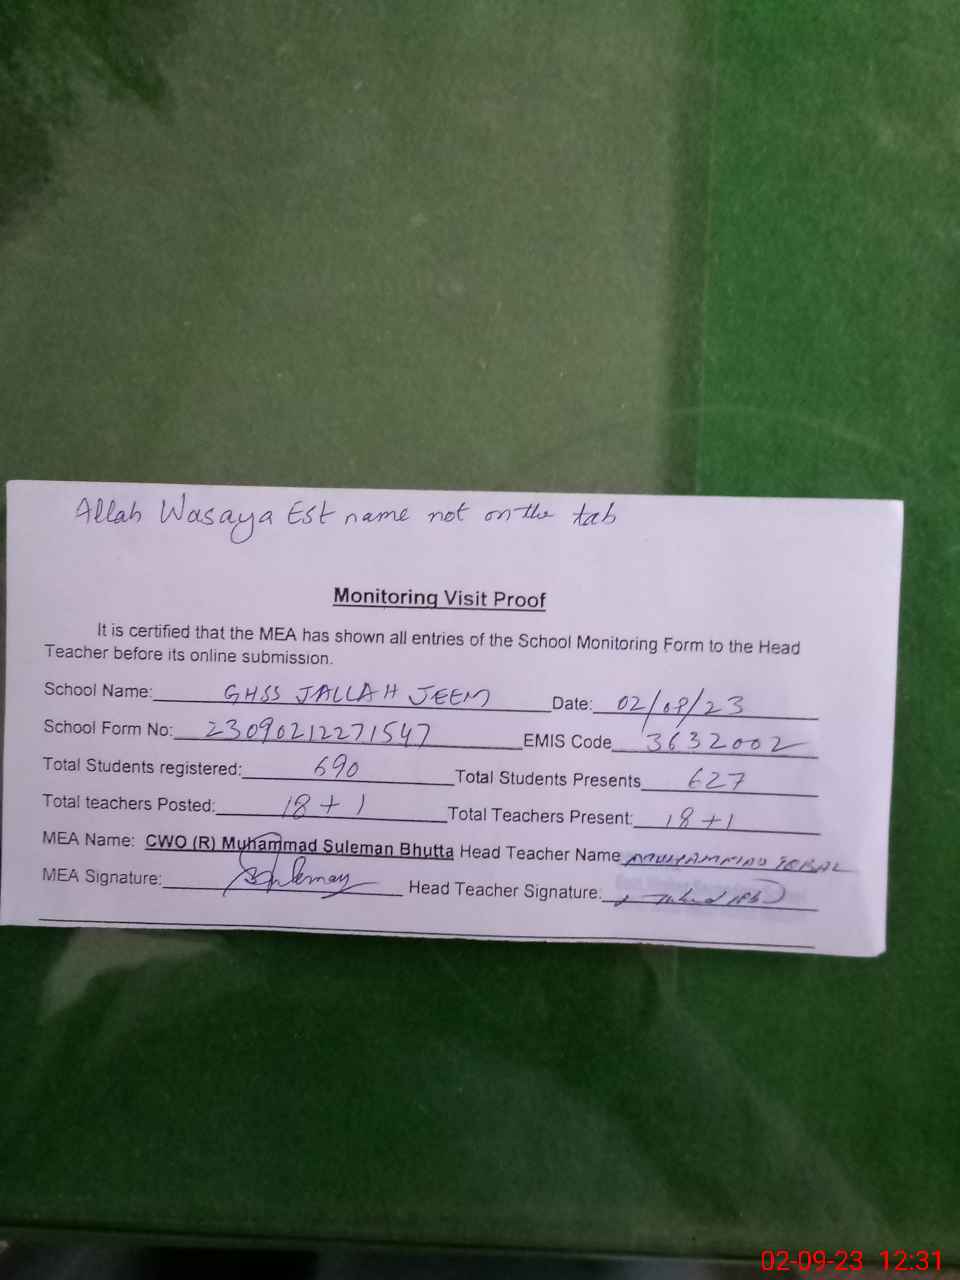 Allah Wasaya Est name not on the tab
Monitoring Visit Proof
It is certified that the MEA has shown all entries of the School Monitoring Form to the Head
Teacher before its online submission.
School Name: GHSS JALLAH JEEM Date: 02/09/23
School Form No: 23090212271547 EMIS Code 3632002
Total Students registered: 690 Total Students Presents 627
Total teachers Posted: 18+1 Total Teachers Present: 18+1
MEA Name: CWO (R) Muhammad Suleman Bhutta Head Teacher Name MUHAMMAD IQBAL
MEA Signature: Suleman Head Teacher Signature:
02-09-23 12:31